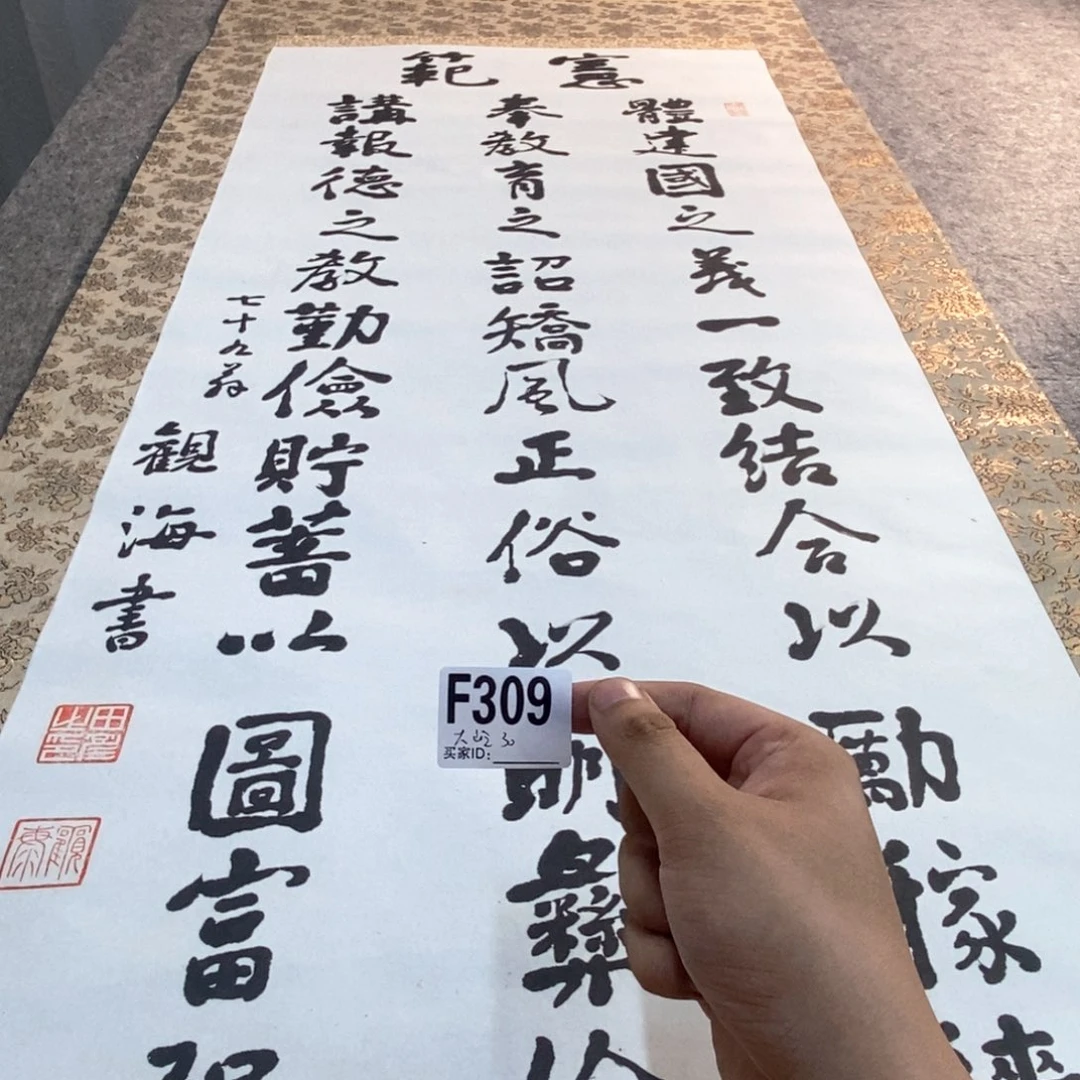 憲範
體建國之義一致結合以勵稼
奉教育之詔矯風正俗以明彝
講報德之教勤儉貯蓄以圖富
七十九翁
觀海書
F309
大屹30
买家ID: